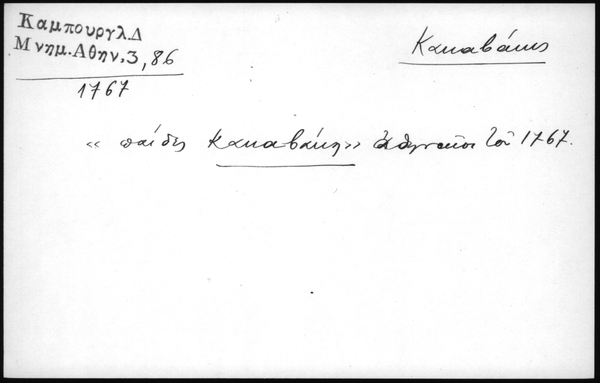 Καμπουργλ.Δ
Μνημ.Αθην.3,86
1767
Κακαβάκης
« παίδες Κακαβάκη » Ἀθηναῖοι τοῦ 1767.